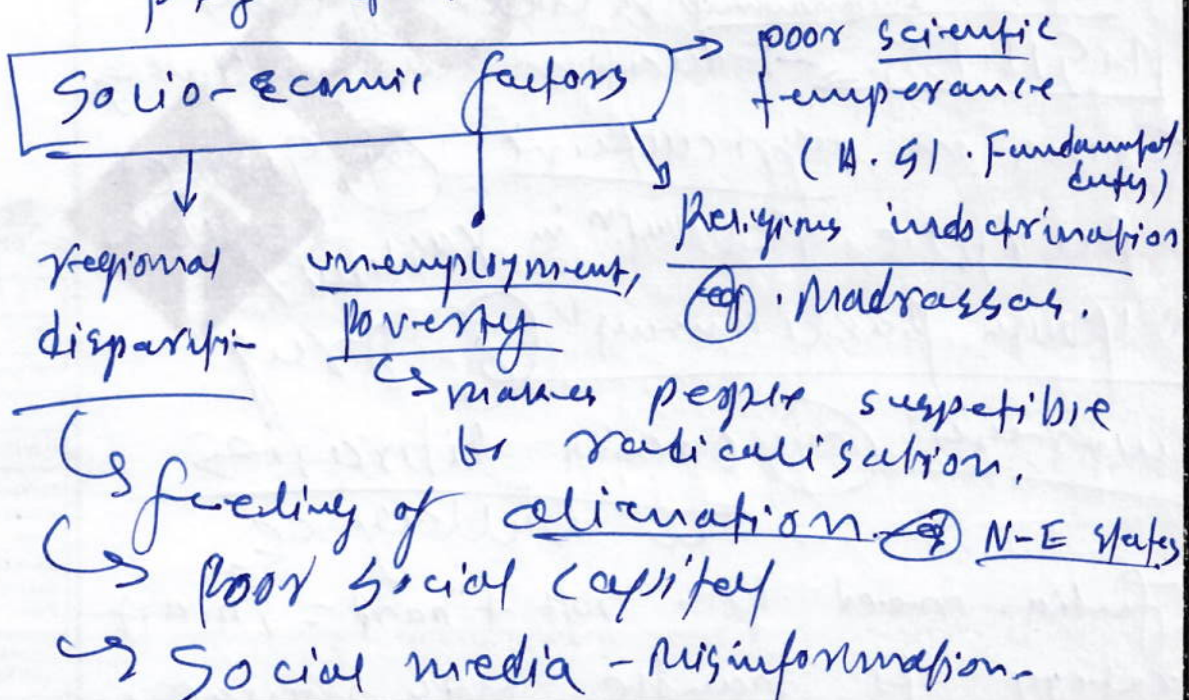 Socio-Ecomic factors
→ poor scientific
temperance
(A. 51. Fundamental
duty)
Religious indoctrination
eg. Madrassas.
regional
dispariti-
unemployment,
Poverty
↳ makes people suspetible
to radicalisation.
↳ feeling of alienation eg N-E states
↳ Poor Social Capital
↳ Social media - Misinformation.